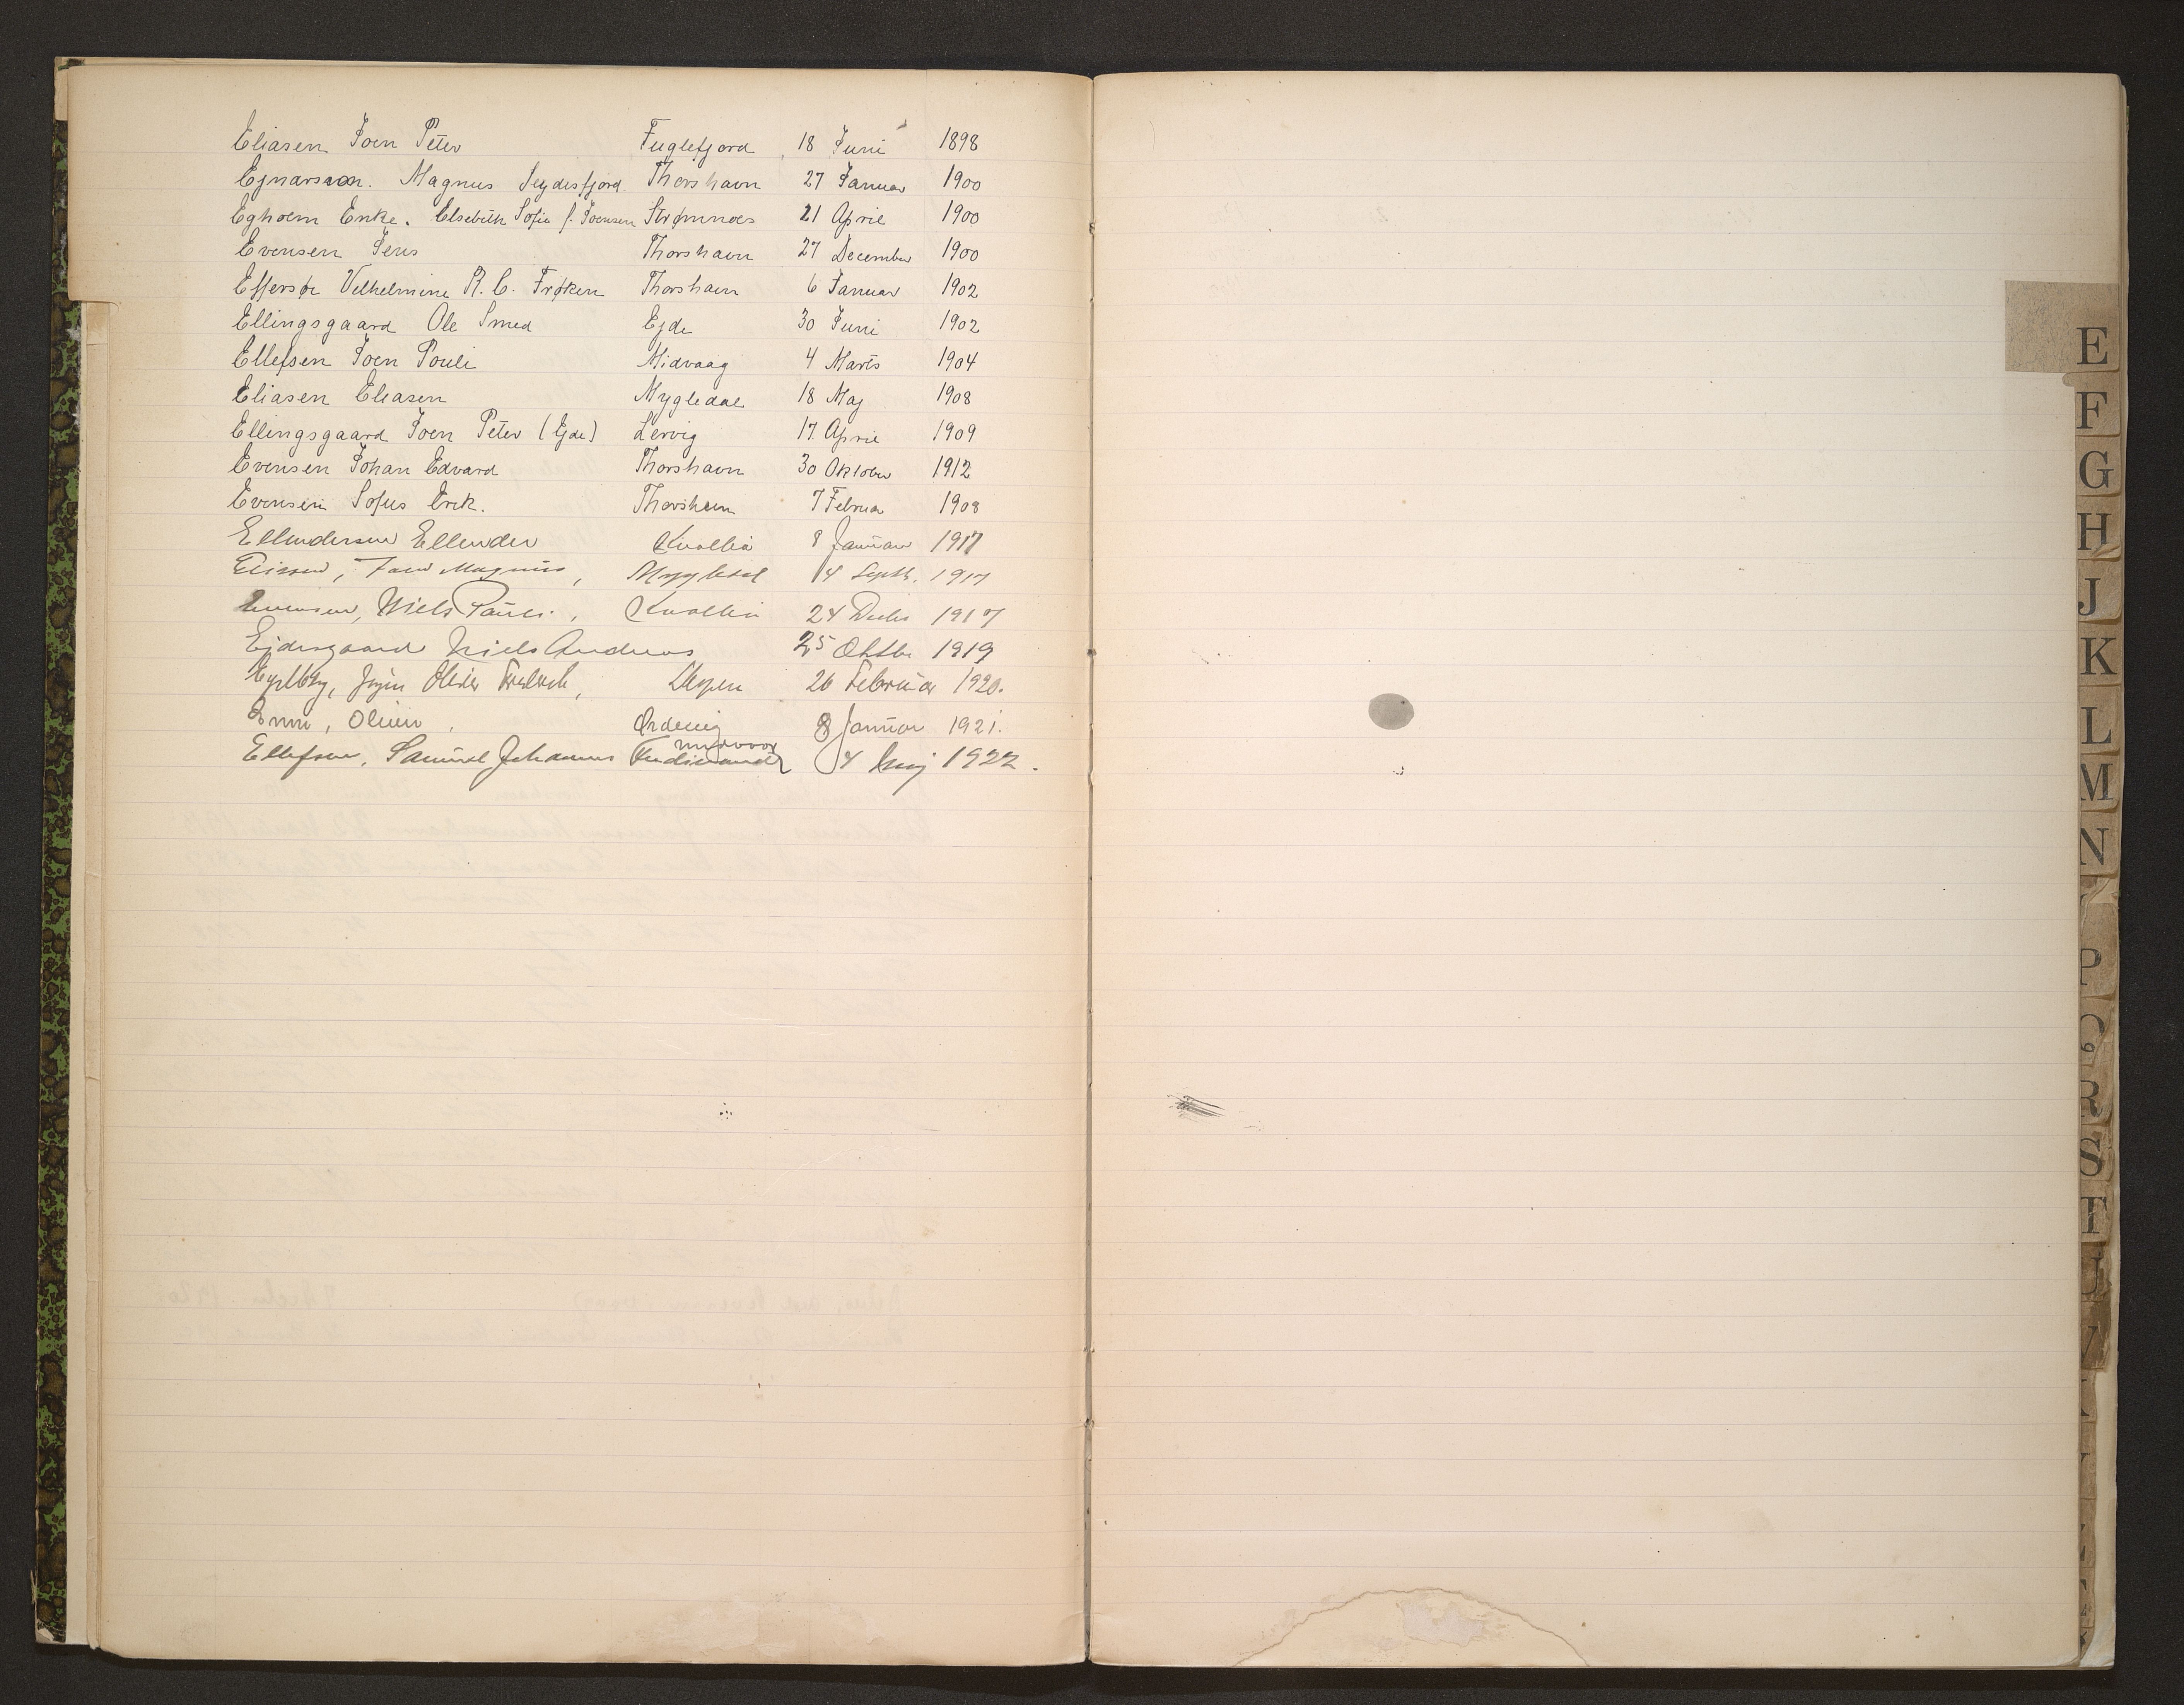 Eliasen Joen Peter Fuglefjord 18 Juni 1898
Ejnarsson. Magnus Seydisfjord Thorshavn 27 Januar 1900
Egholm Enke. Elsebeth Sofie f. Joensen Strømnæs 21 April 1900
Evensen Jens Thorshavn 27 December 1900
Effersøe Vilhelmine R. C. Frøken Thorshavn 6 Januar 1902
Ellingsgaard Ole Smed Ejde 30 Juni 1902
Ellefsen Joen Pouli Midvaag 4 Marts 1904
Eliasen Eliasen Mygledal 18 Maj 1908
Ellingsgaard Joen Peter (Ejde) Lervig 17. April 1909
Evensen Johan Edvard Thorshavn 30 Oktober 1912
Evensen Sofus Erik. Thorshavn 7 Februar 1908
Ellendersen Ellender Kvalbø 8 Januar 1917
Joen Magnus, Mygledal 14 Septb. 1917
Niels Pauli, Kvalbø 24 Decbr 1917
Ejdesgaard Niels Andreas 25 Oktbr 1919
26 Februar 1920.
Olivur, Ørdevig 8 Januar 1921.
Midvaag
Ellefsen, Samuel Johannes Ferdinand 4 Maj 1922.
E
F
G
H
J
K
L
M
N
P
Q
R
S
T
U
V